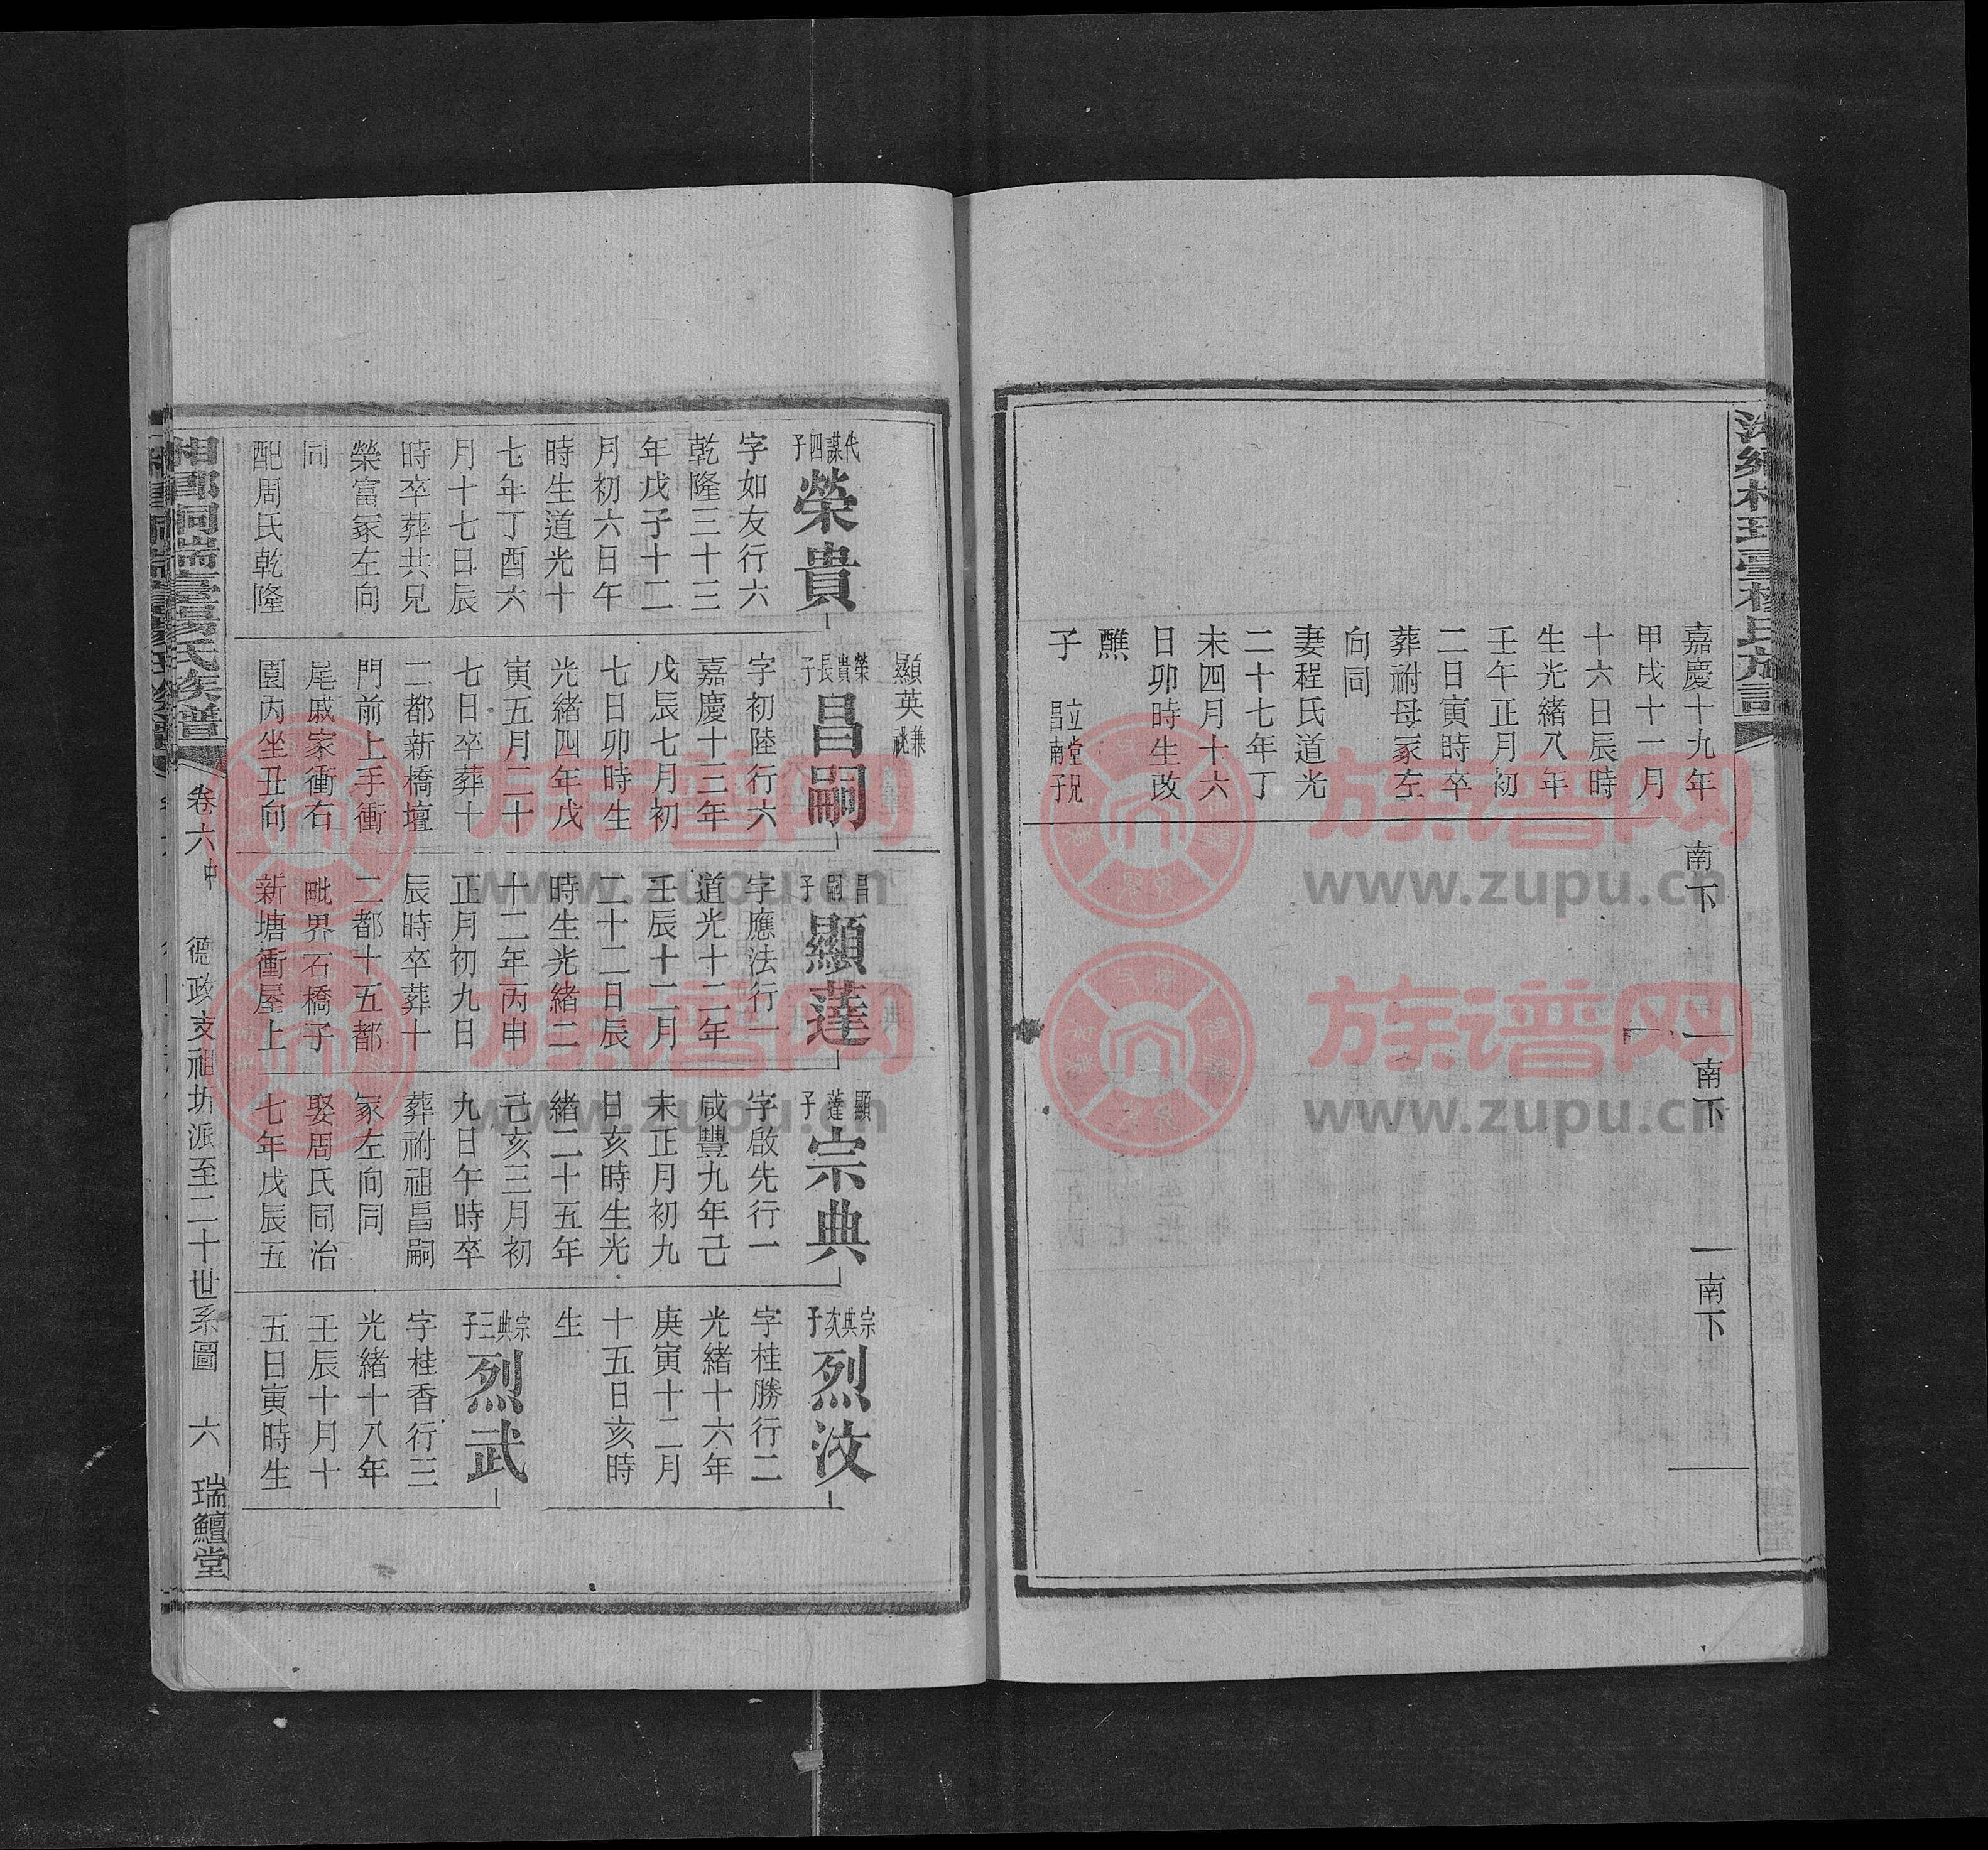 嘉慶十九年
甲戌十一月
十六日辰時
生光緒八年
壬午正月初
二日寅時卒
葬祔母冢左
向同
妻程氏道光
二十七年丁
未四月十六
日卯時生改
醮
子 立堂兄
昌南子
南下
一南下
一南下
代謀四子
榮貴
字如友行六
乾隆三十三
年戊子十二
月初六日午
時生道光十
七年丁酉六
月十七日辰
時卒葬共兄
榮富冢左向
同
配周氏乾隆
顯英兼祧
榮貴長子
昌嗣
字初陸行六
嘉慶十三年
戊辰七月初
七日卯時生
光緒四年戊
寅五月二十
七日卒葬十
二都新橋壇
門前上手衝
尾戚家衝右
園內坐丑向
昌嗣子
顯蓬
字應法行一
道光十二年
壬辰十二月
二十二日辰
時生光緒二
十二年丙申
正月初九日
辰時卒葬十
二都十五都
毗界石橋子
新塘衝屋上
顯蓬子
宗典
字啟先行一
咸豐九年己
未正月初九
日亥時生光
緒二十五年
己亥三月初
九日午時卒
葬祔祖昌嗣
冢左向同
娶周氏同治
七年戊辰五
宗典次子
烈汶
字桂勝行二
光緒十六年
庚寅十二月
十五日亥時
生
宗典三子
烈武
字桂香行三
光緒十八年
壬辰十月十
五日寅時生
卷六中
德政支祖圻派至二十世系圖
六
瑞鱣堂
族谱网
www.zupu.cn
族谱网
www.zupu.cn
族谱网
www.zupu.cn
族谱网
www.zupu.cn